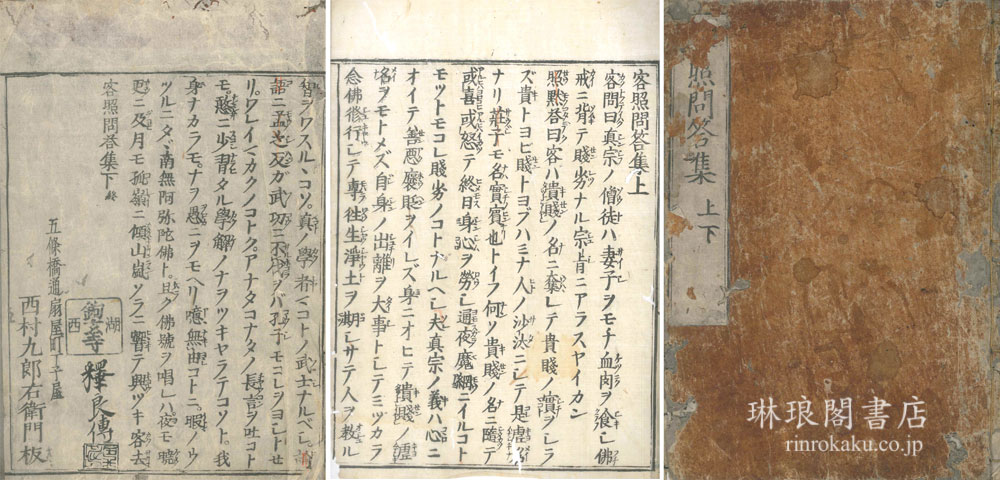 照問答集 上下
琳琅閣書店
rinrokaku.co.jp
客照問答集上
客問曰真宗ノ僧徒ハ妻子ヲモチ血肉ヲ飡シ佛
戒ニ背テ賤劣ナル宗旨ニアラスヤイカン
照黙答曰客ハ貴賤ノ名ニ奪レテ貴賤ノ實ヲシラ
ズ貴トヨビ賤トヨブハミナ人ノ沙汰ニシテ是虚
ナリ莊子モ名實賓也トイフ何ソ貴賤ノ名ニ臨テ
或喜或怒テ終日身心ヲ勞シ通夜魔網ニイルコト
モットモコレ賤劣ノコトナルヘシ夫真宗ノ義ハ心ニ
オイテ善悪襃貶ヲイレズ身ニオヒテ貴賤ノ虚
名ヲモトメズ自身ノ出離ヲ大事トシテミツカラ
念佛修行シテ専往生浄土ヲ期シサテ人ヲ教ル
智ヲワスル、コソ真ノ學者ノコトノ武士ナルベシ
語ニ孟之反ガ武功ニ不ノバ孔子モコレヲヨシトせ
リワレイヘカクノコトクアナタコナタノ長言ヲ吐コト
モ少青タル學解ノナヲツキヤラテコソト我
身ナカラモナヲ愚ニヲモヘリ噫無由コトニ暇ノウ
ツルニタゞ南無阿弥陀佛ト且ク佛號ヲ唱レハ夜モ
更ニ及月モ嶺ニ傾山嵐ソラニ響テ興ツキ客去
客照問答集下終
五條橋通扇屋町丁子屋
西村九郎右衛門板
湖西
釋良傳